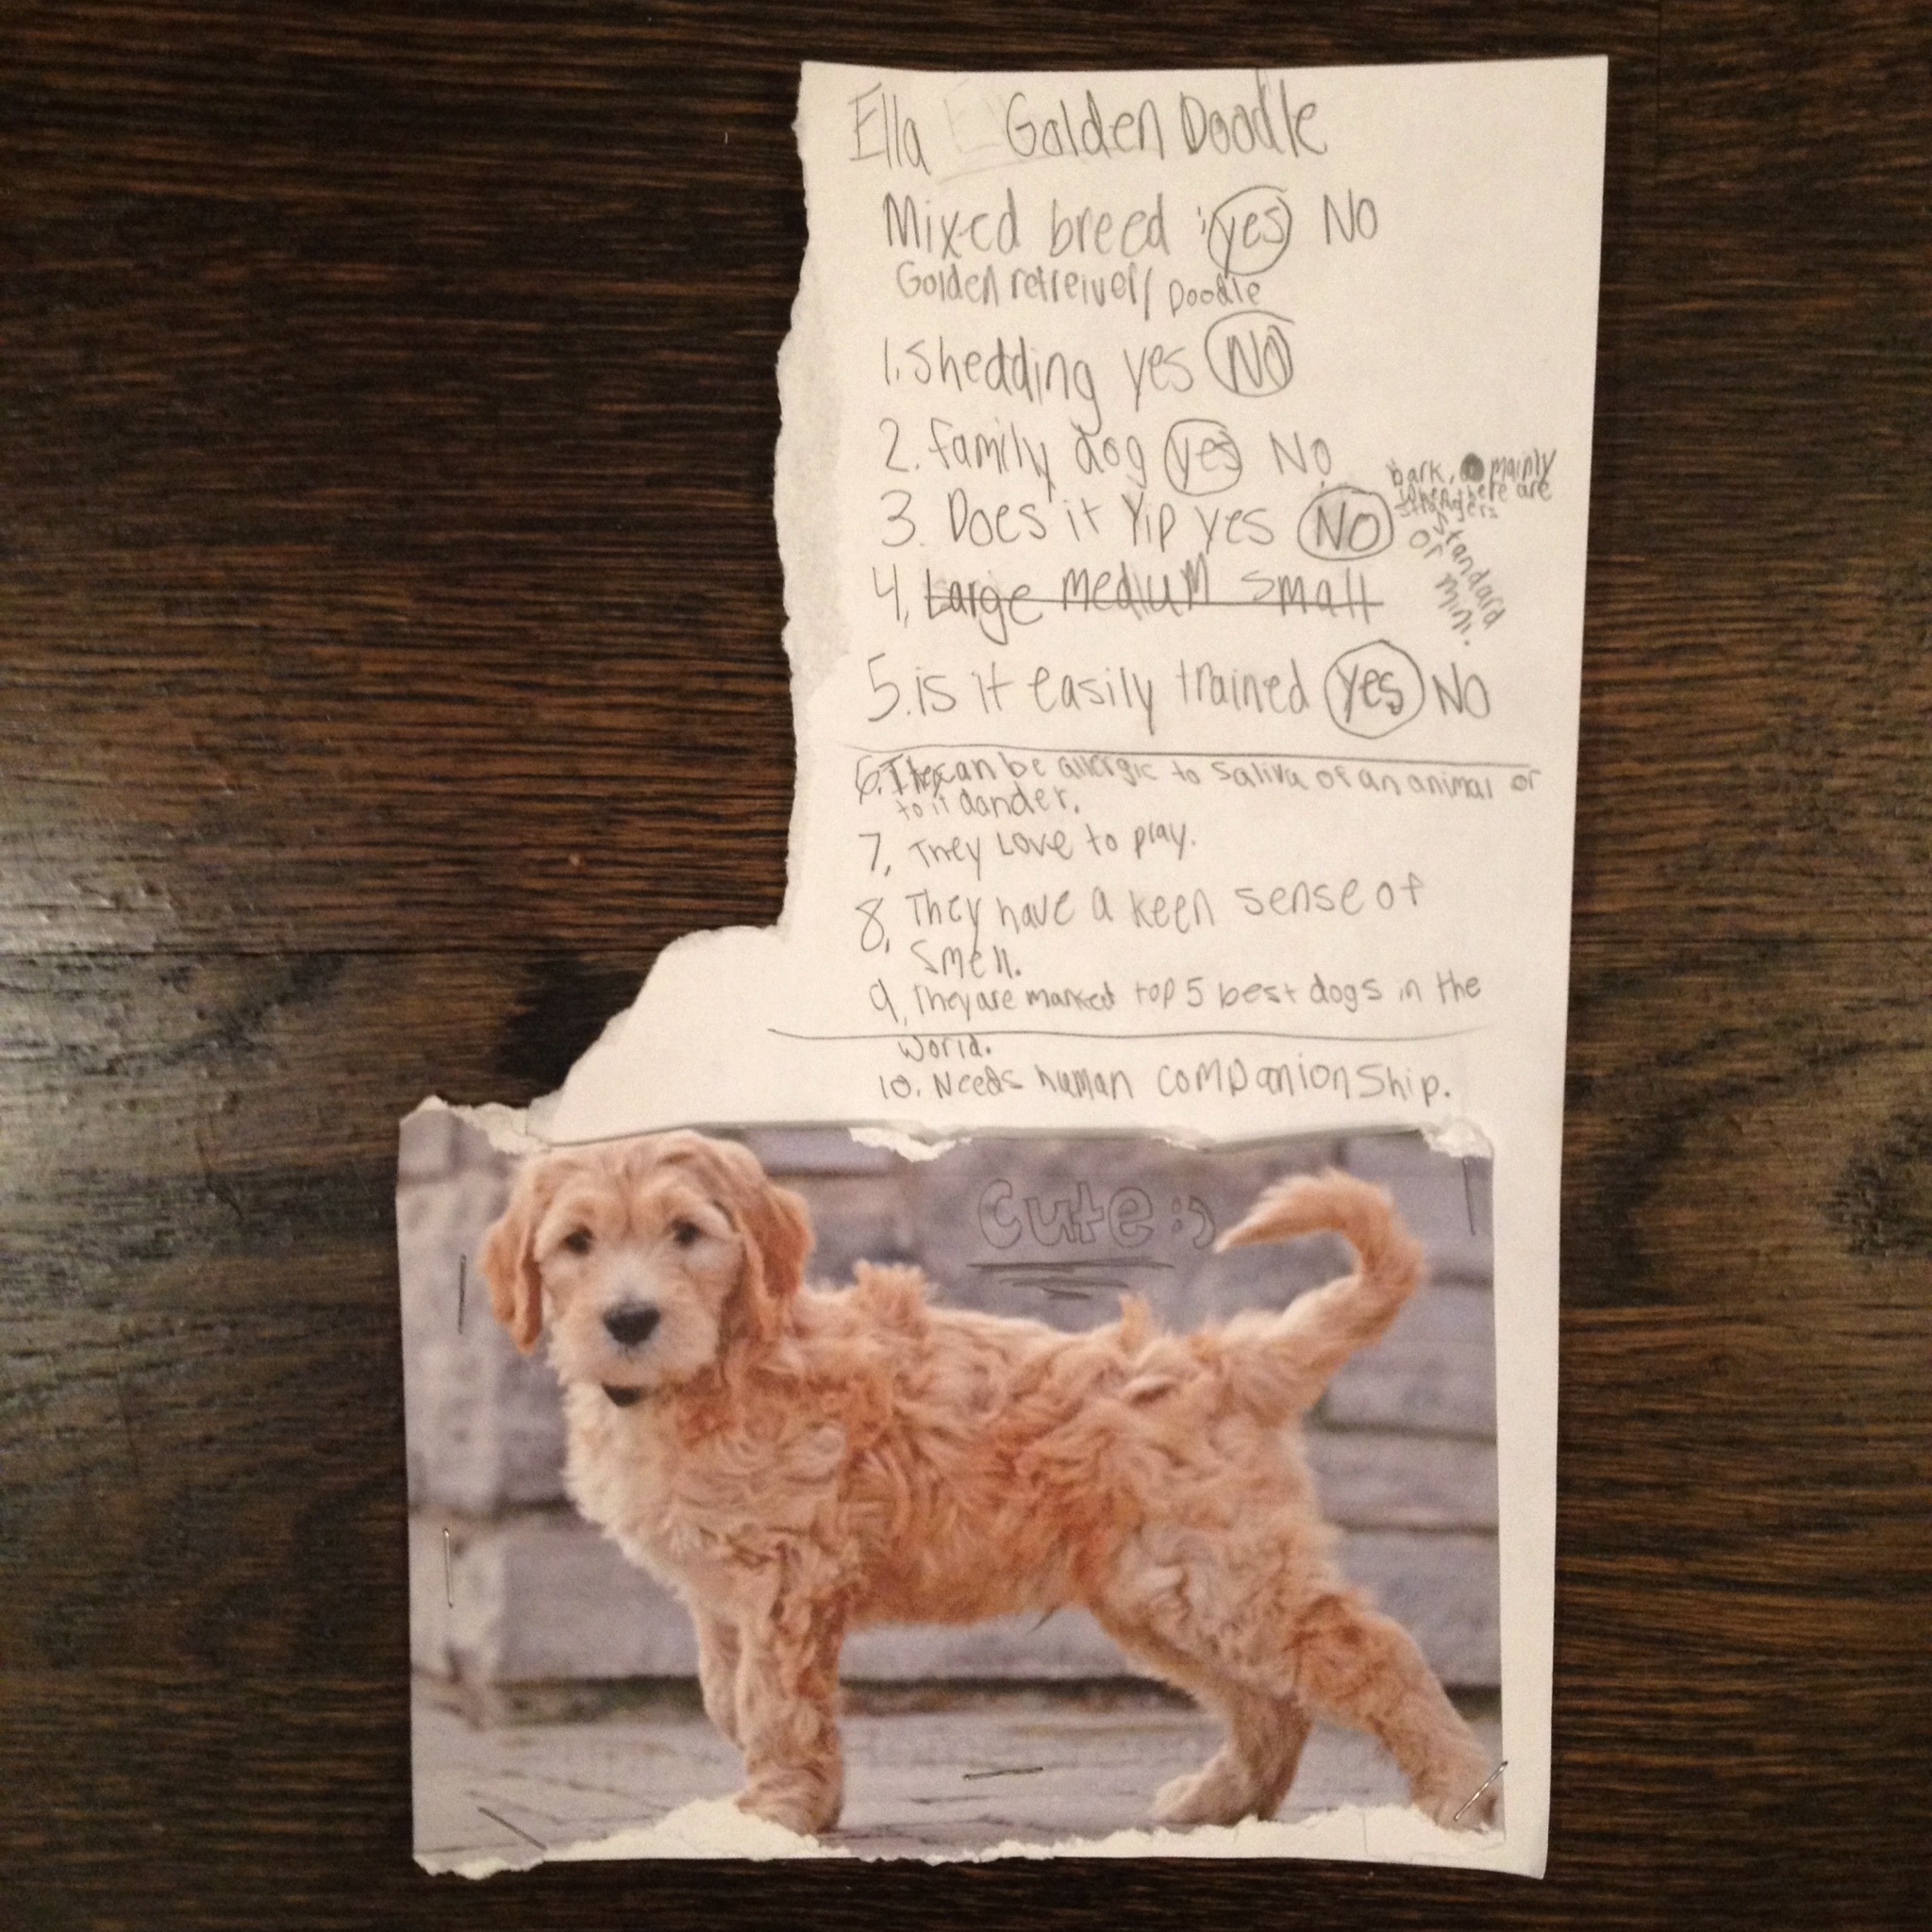 Ella Golden Doodle
Mixed breed : yes NO
Golden retreiver/ Doodle
1. Shedding yes NO
2. family dog yes No
3. Does it Yip yes NO
bark, mainly
when there are
strangers
4. Large medium small
standard
or mini.
5. is it easily trained yes NO
6. They can be allergic to saliva of an animal or
to it dander.
7. They Love to play.
8. They have a keen sense of
smell.
9. They are marked top 5 best dogs in the
world.
10. Needs human companionship.
Cute :)